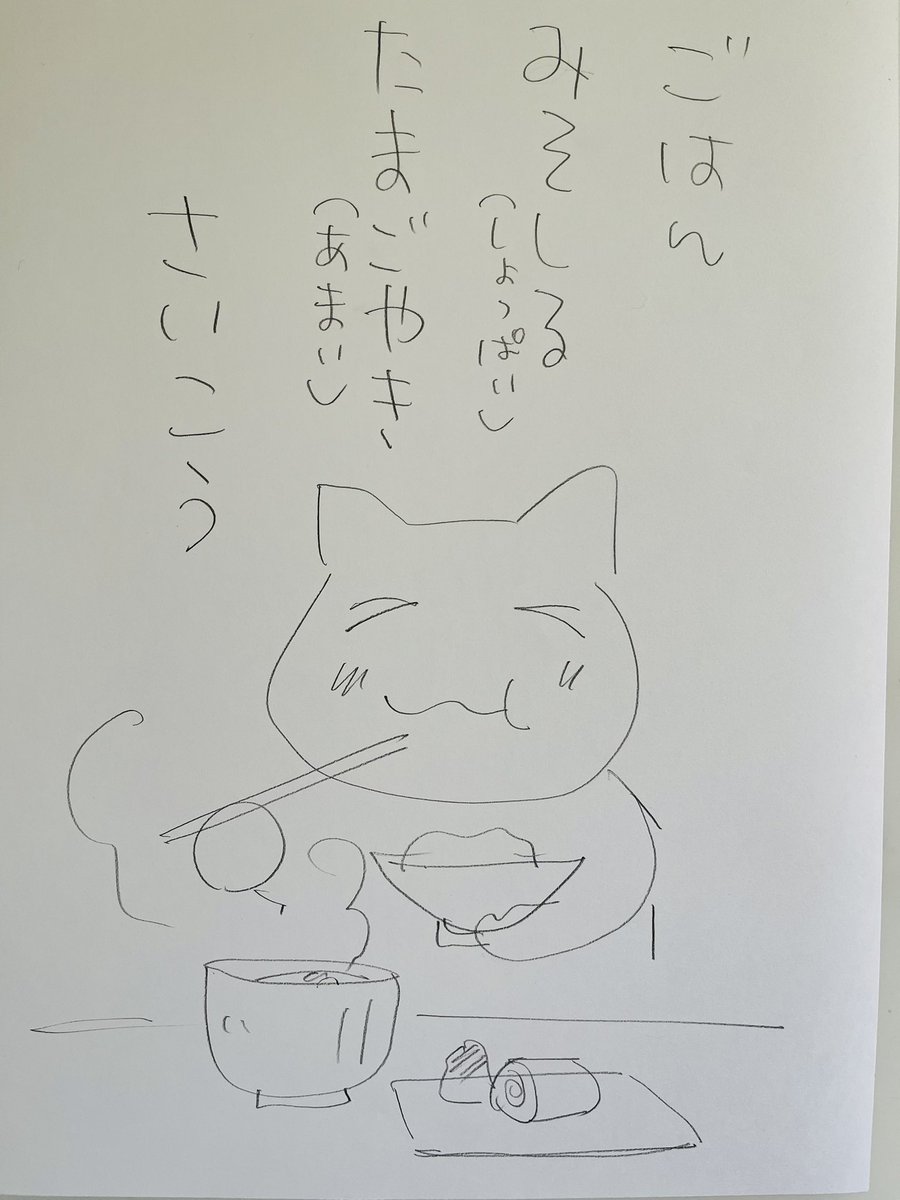 ごはん
みそしる
(しょっぱい)
たまごやき
(あまい)
さいこう